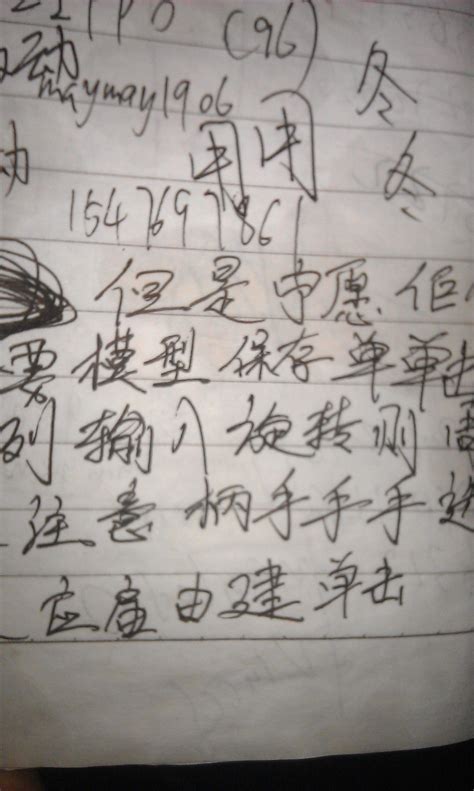 (96)
动 冬
maymay1906
用用 冬
1547697861
但是中愿但
要模型保存单单击
列输入旋转则周
注意柄手手手选
定届由建单击